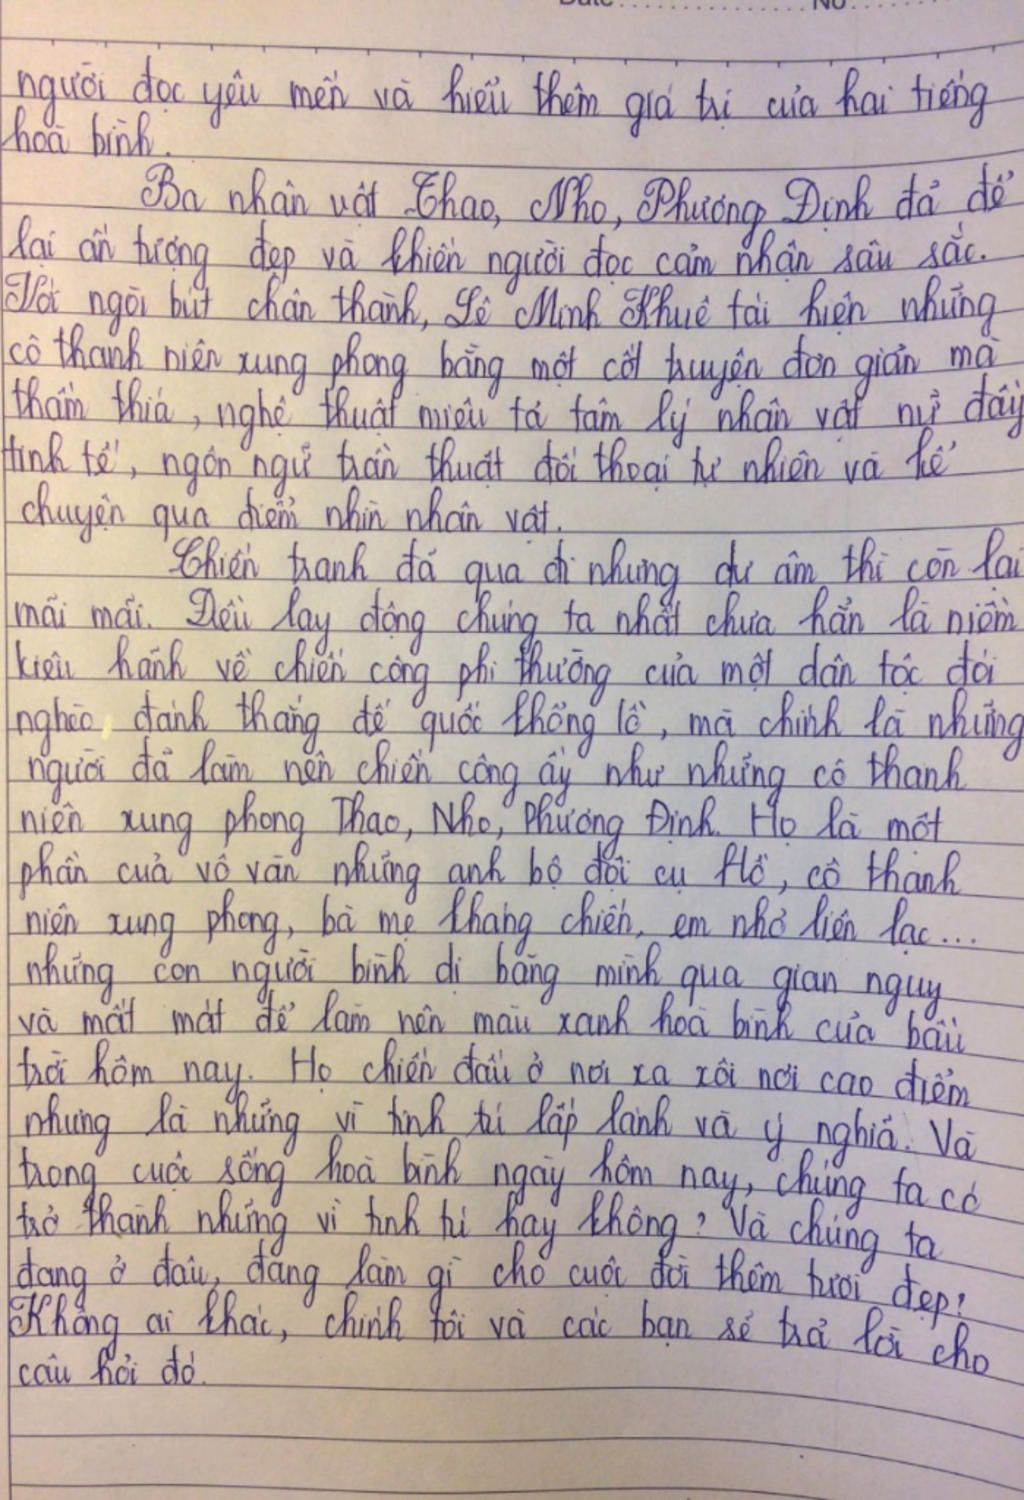 Date .................... No ............
người đọc yêu mến và hiểu thêm giá trị của hai tiếng
hoà bình.
Ba nhân vật Thao, Nho, Phương Định đã để
lại ấn tượng đẹp và khiến người đọc cảm nhận sâu sắc.
Với ngòi bút chân thành, Lê Minh Khuê tái hiện những
cô thanh niên xung phong bằng một cốt truyện đơn giản mà
thấm thía, nghệ thuật miêu tả tâm lý nhân vật nữ đầy
tinh tế, ngôn ngữ trần thuật đối thoại tự nhiên và kể
chuyện qua điểm nhìn nhân vật.
Chiến tranh đã qua đi nhưng dư âm thì còn lại
mãi mãi. Điều lay động chúng ta nhất chưa hẳn là niềm
kiêu hãnh về chiến công phi thường của một dân tộc đói
nghèo, đánh thắng đế quốc khổng lồ, mà chính là những
người đã làm nên chiến công ấy như những cô thanh
niên xung phong Thao, Nho, Phương Định. Họ là một
phần của vô vàn những anh bộ đội cụ Hồ, cô thanh
niên xung phong, bà mẹ kháng chiến, em nhỏ liên lạc...
những con người bình dị băng mình qua gian nguy
và mất mát để làm nên màu xanh hoà bình của bầu
trời hôm nay. Họ chiến đấu ở nơi xa xôi nơi cao điểm
nhưng là những vì tinh tú lấp lánh và ý nghĩa. Và
trong cuộc sống hoà bình ngày hôm nay, chúng ta có
trở thành những vì tinh tú hay không? Và chúng ta
đang ở đâu, đang làm gì cho cuộc đời thêm tươi đẹp?
Không ai khác, chính tôi và các bạn sẽ trả lời cho
câu hỏi đó.